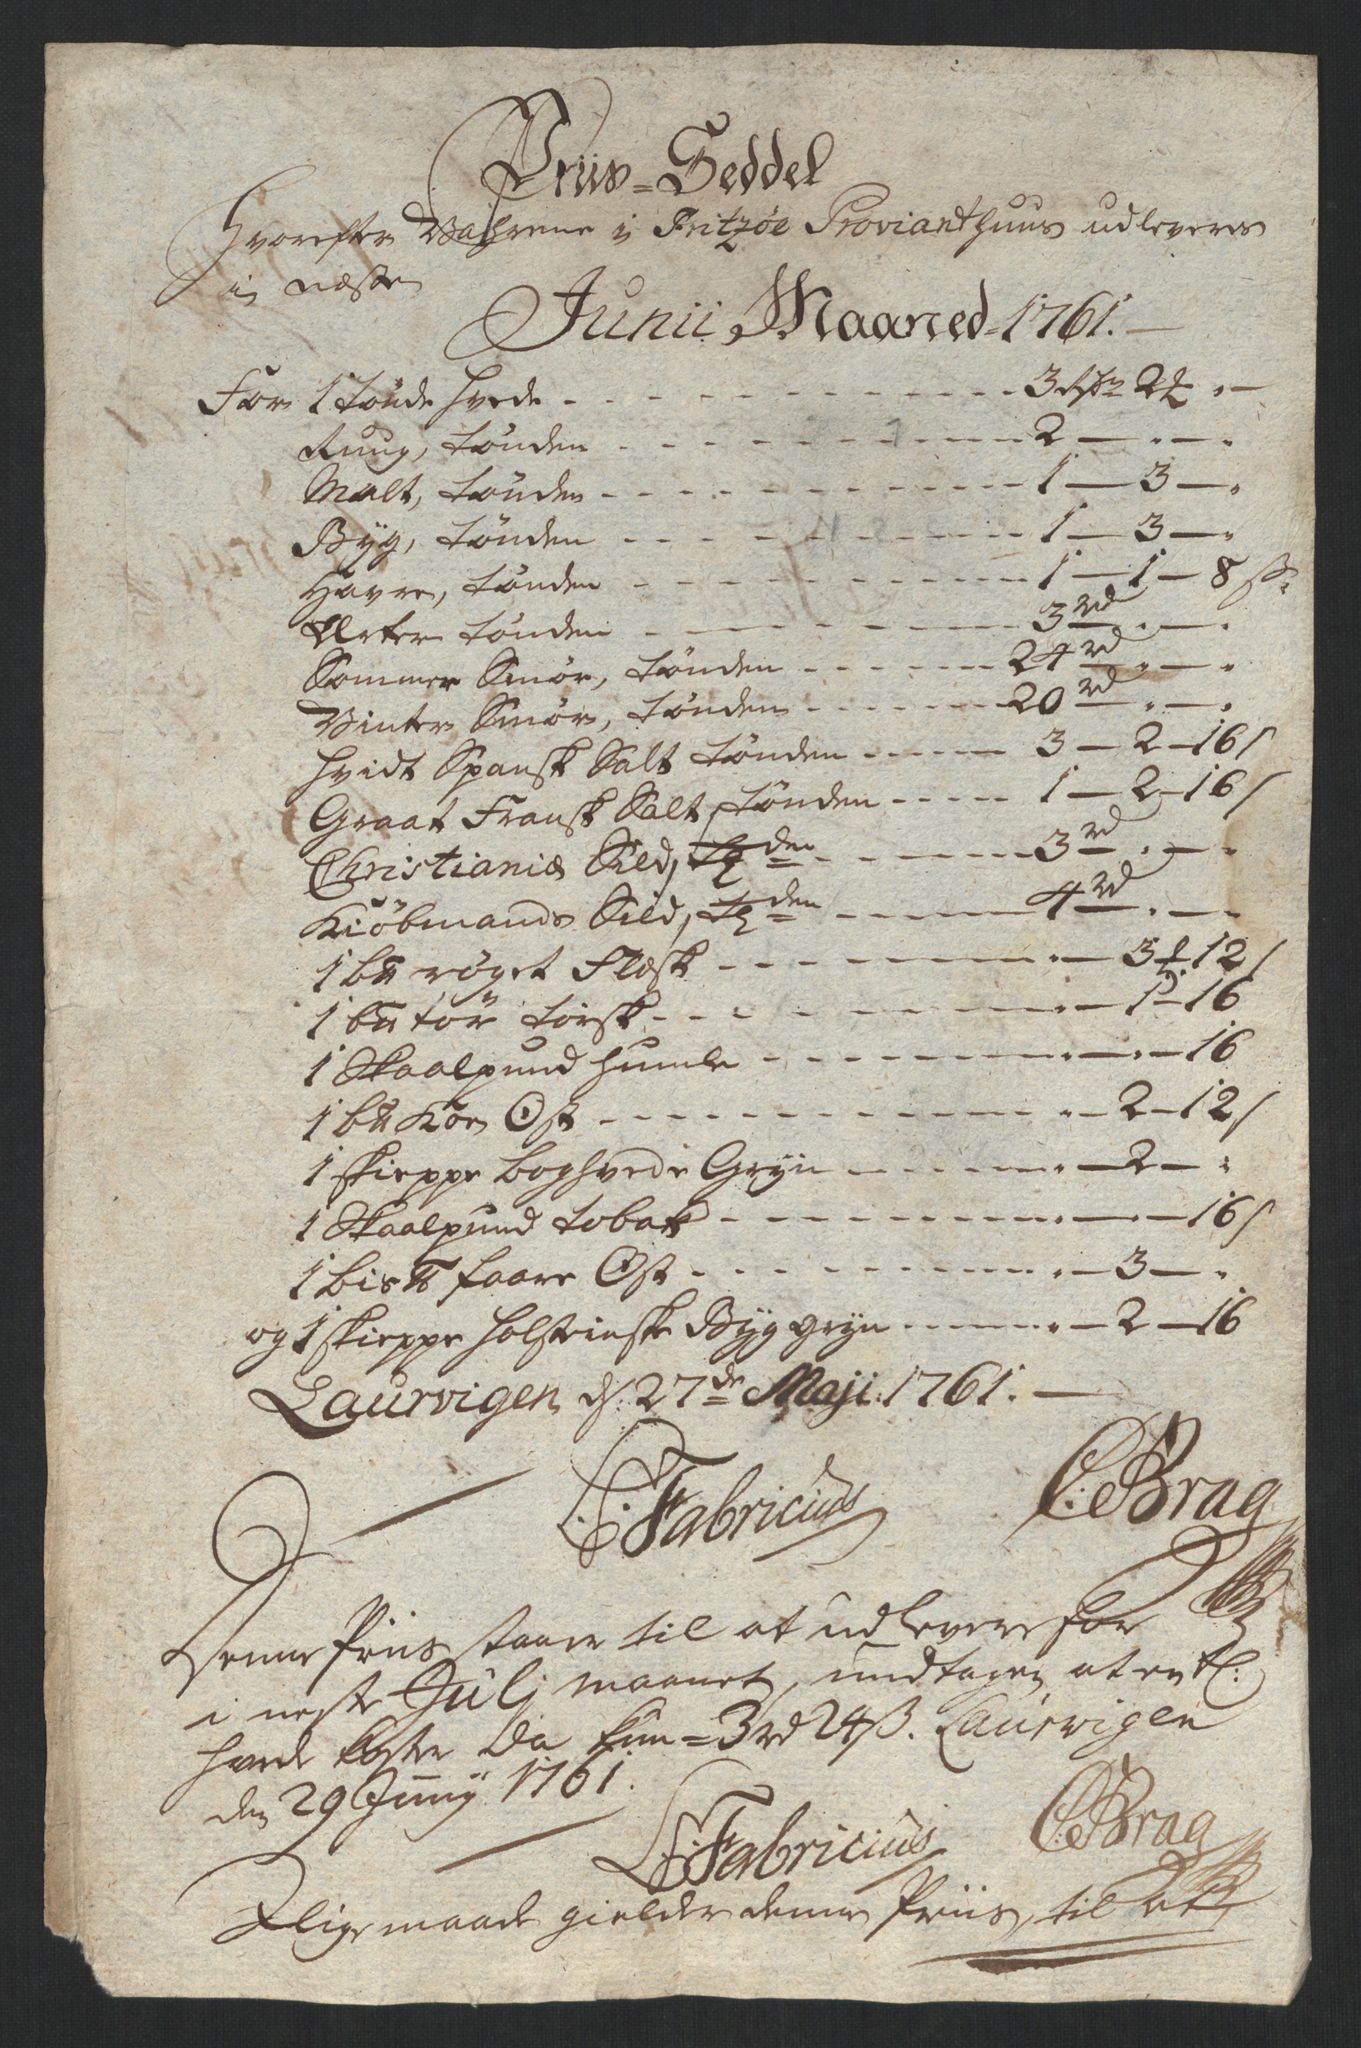 Priis-Seddel
Hvorefter Vahrene i Fritzøe Provianthuus udleveres
i næste
Junii Maaned 1761.
For 1 tønde hvede - 3 rdr 2 ₰ . -
Ruug, tønden - 2 - . - .
Malt, tønden - 1 - 3 - .
Byg, tønden - 1 - 3 - .
Havre, tønden - 1 - 1 - 8 s
Ærter tønden - 3 rd . - .
Sommer Smør, tønden - 24 rd . - .
Vinter Smør, tønden - 20 rd . - .
hvidt Spansk Salt tønden - 3 - 2 - 16 s
Graat Fransk Salt, tønden - 1 - 2 - 16 s
Christianiæ Sild, Tden - 3 rd . - .
Kiøbmands Sild, Tden - 4 rd . - .
1 b℔ røget Flesk - . - 3 ₰ 12 s
1 b℔ tør torsk - . - 1 - 16
1 Skaalpund humle - . - . - 16
1 b℔ Koe Ost - . - 2 - 12 s
1 skieppe boghvede Gryn - . - 2 - .
1 Skaalpund tobak - . - . - 16 s
1 bis℔ faare Ost - . - 3 - .
og 1 skieppe holsteinske Byggryn - . - 2 - 16
Laurvigen d: 27de Maji 1761.
C: Fabricius C: Brag
Denne Priis staaer til at udlevere for
i neste Julj maanet, undtagen at en t:
hvede koster da kun = 3 rd 24 β. Laurvigen
den 29 Junij 1761.
C: Fabricius C: Brag
Ligemaade gielder denne Priis, til at